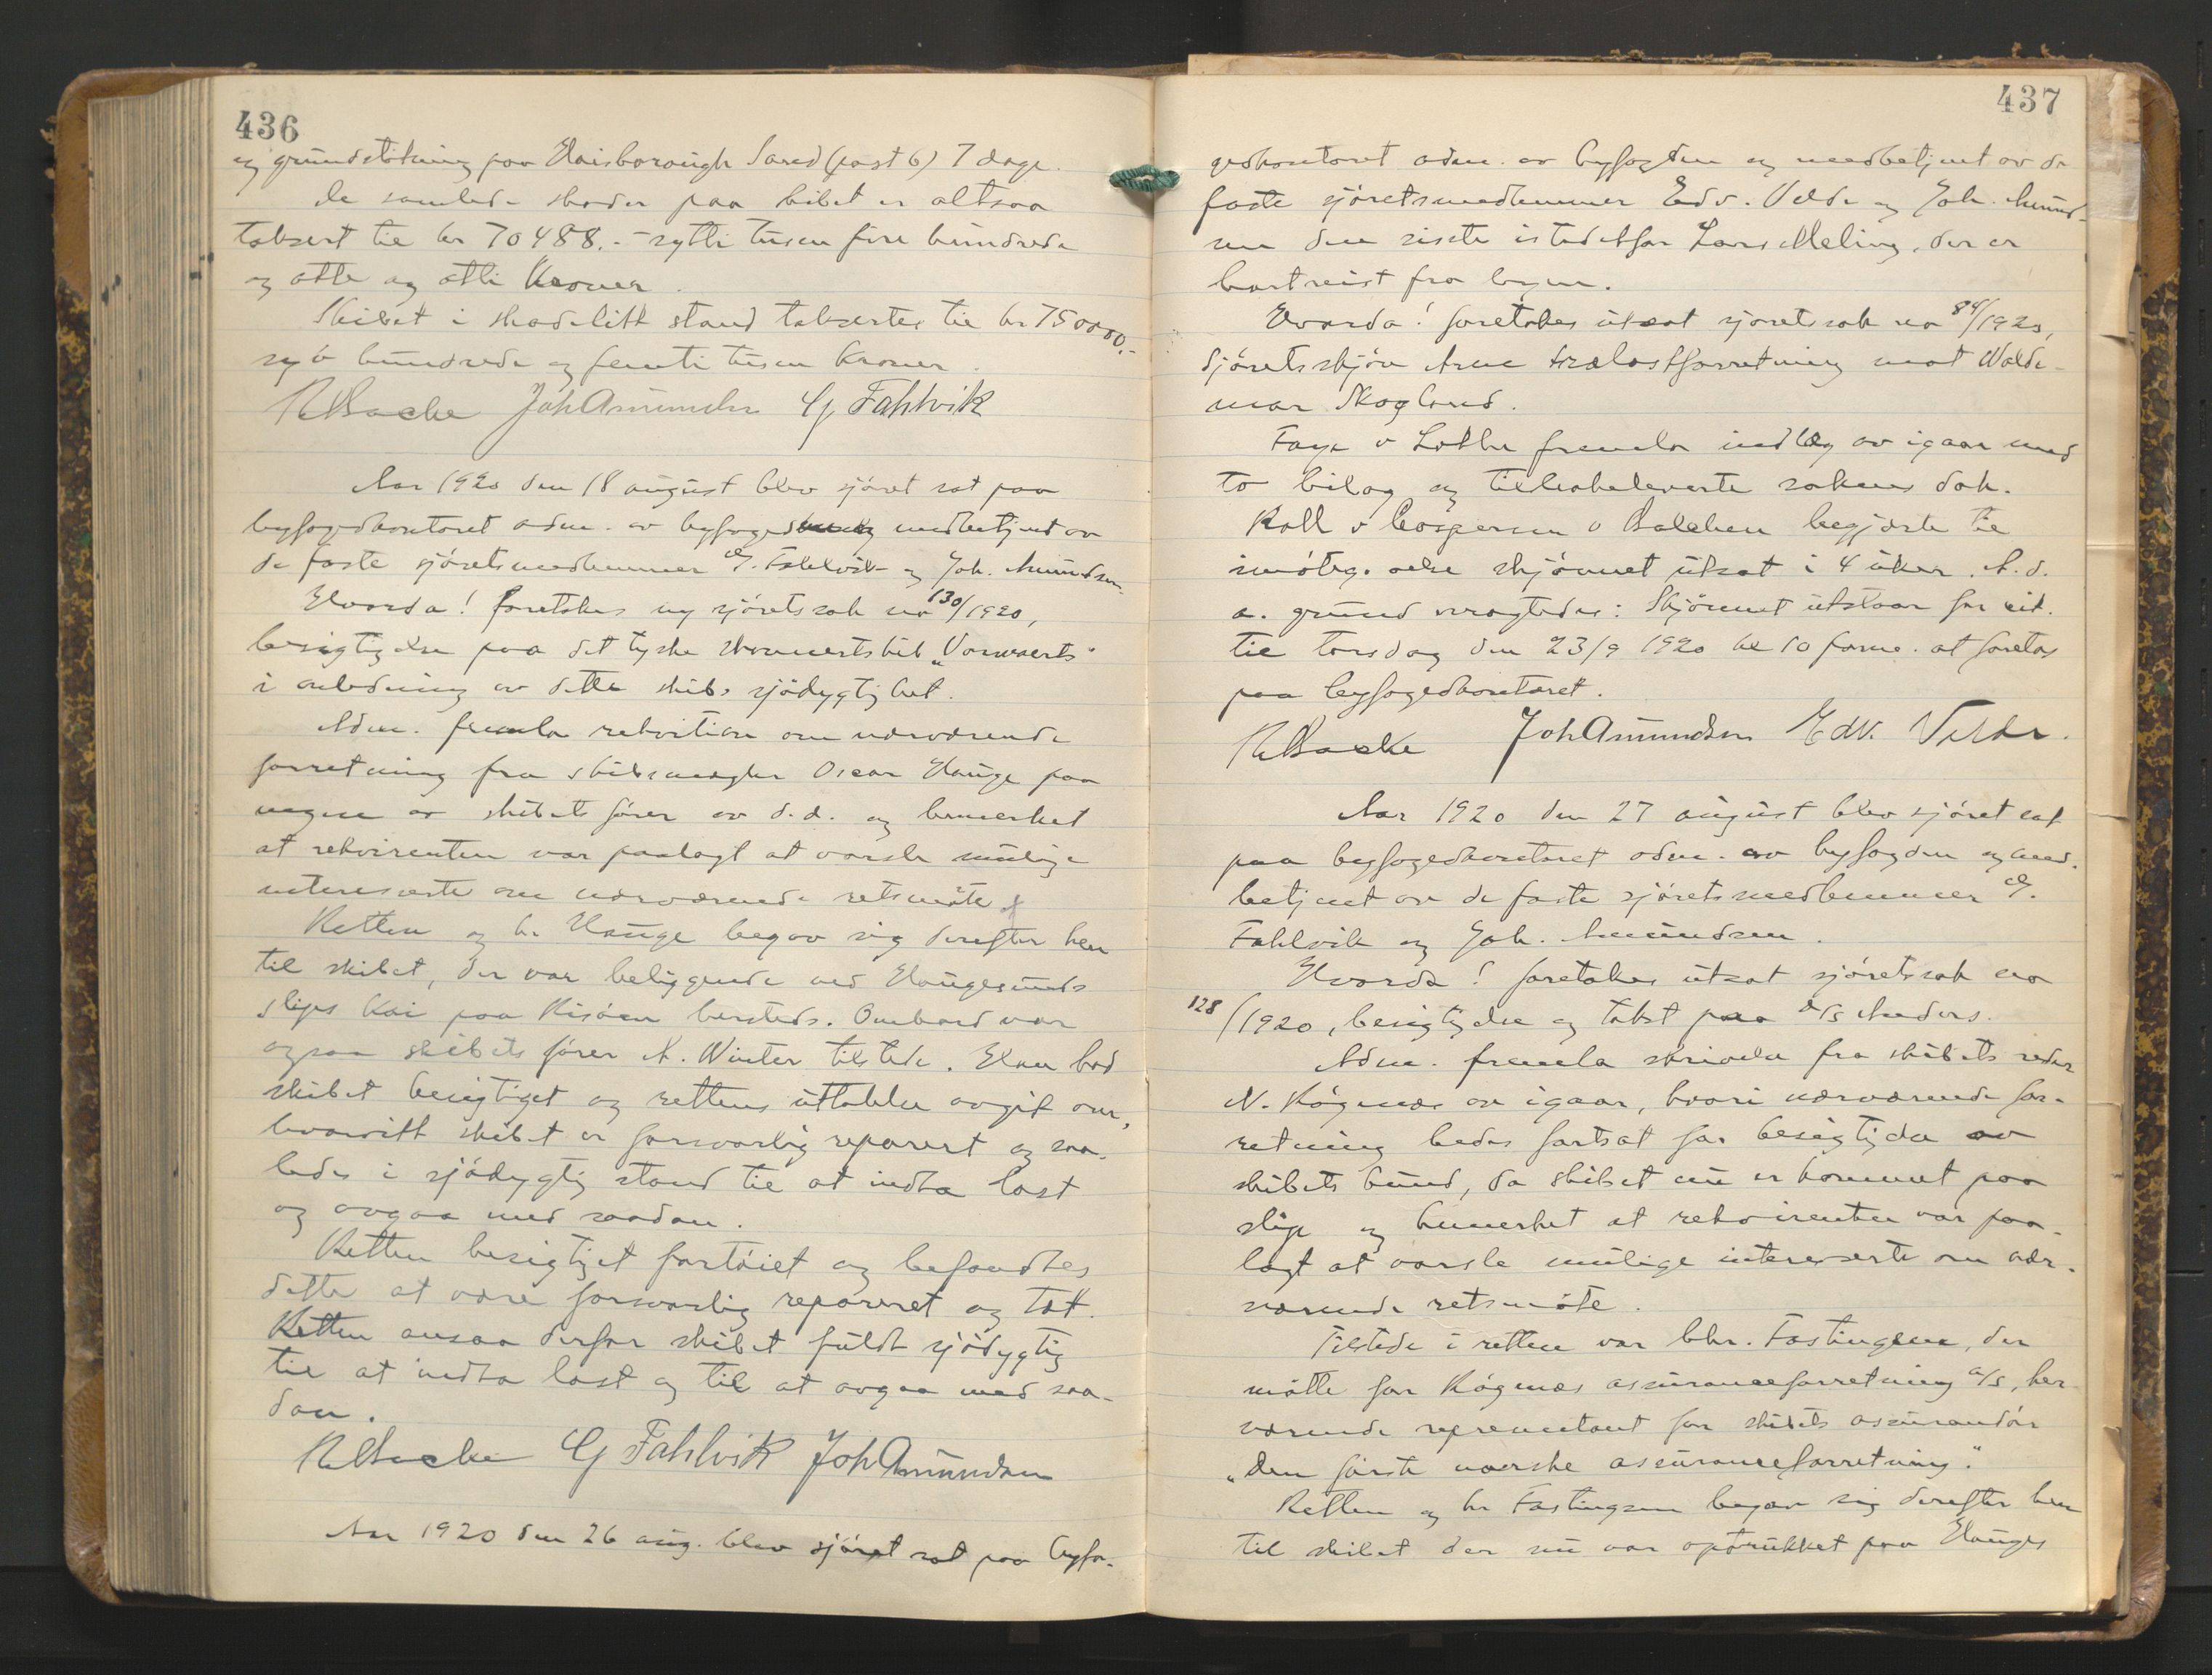 436
og grundstötning paa Haisborough Sand (post 6) 7 dage.
De samlede skader paa skibet er altsaa
taksert til kr 70488.- sytti tusen fire hundrede
og otte og otti Kroner.
Skibet i skadelitt stand taksertes til kr 750000.-
syv hundrede og femti tusen kroner.
RBacke JohAmundsen G Fahlvik
Aar 1920 den 18 august blev sjöret sat paa
byfogedkontoret adm. av byfogden og medbetjent av
de faste sjöretsmedlemmer G. Fahlvik og Joh. Amundsen.
Hvorda! foretokes ny sjöretssak no 130/1920,
besigtigelse paa det tyske skonnertskib "Vorwaerts"
i anledning av dette skibs sjödygtighet.
Adm. fremla rekvisition om nærværende
forretning fra skibsmægler Oscar Hauge paa
vegne av skibets förer av d.d. og bemerket
at rekvirenten var paalagt at varsle mulige
interesserte om nærværende retsmöte.
Retten og hr. Hauge begav sig derefter hen
til skibet, der var beliggende ved Haugesunds
slips kai paa Risöen hersteds. Ombord var
ogsaa skibets förer A. Winter tilstede. Han bad
skibet besigtiget og rettens uttalelse avgit om,
hvorvitt skibet er forsvarlig reparert og saa-
ledes i sjödygtig stand til at indta last
og avgaa med saadan.
Retten besigtiget fartöiet og befandtes
dette at være forsvarlig reparert og tæt.
Retten ansaa derfor skibet fuldt sjödygtig
til at indta last og til at avgaa med saa-
dan.
RBacke G Fahlvik JohAmundsen
Aar 1920 den 26 aug. blev sjöret sat paa byfo-
437
gedkontoret adm. av byfogden og medbetjent av de
faste sjöretsmedlemmer Edv. Velde og Joh. Amund-
sen den siste istedetfor Lars Meling, der er
bortreist fra byen.
Hvorda! foretokes utsat sjöretssak no 84/1920,
Sjöretsskjön Arne trælastforretning mot Walde-
mar Skogland.
Faye v Lothe fremla indlæg av igaar med
to bilag og tilbakeleverte sakens dok.
Koll v Caspersen v Balchen begjærte til
imöteg. else skjönnet utsat i 4 uker. A. d.
a. grund vragtedes: Skjönnet utstaar for eit.
til torsdag den 23/9 1920 kl 10 form. at foretas
paa byfogedkontoret.
RBacke JohAmundsen Edv. Velde.
Aar 1920 den 27 august blev sjöret sat
paa byfogedkontoret adm. av byfogden og med-
betjent av de faste sjöretsmedlemmer G.
Fahlvik og Joh. Amundsen.
Hvorda! foretokes utsat sjöretssak no
128/1920, besigtigelse og takst paa D/S Anders.
Adm. fremla skrivelse fra skibets reder
N. Rögenæs av igaar, hvori nærværende for-
retning bedes fortsat for besigtigelse av
skibets bund, da skibet nu er kommet paa
slip og bemerket at rekvirenten var paa-
lagt at varsle mulige interesserte om nær-
værende retsmöte.
Tilstede i retten var bhr. Fastingsen, der
mötte for Rögenæs assuranceforretning A/S, her-
værende representant for skibets assurandör
"Den förste norske assuranceforretning."
Retten og hr Fastingsen begav sig derefter hen
til skibet der nu var optrukket paa Hauges